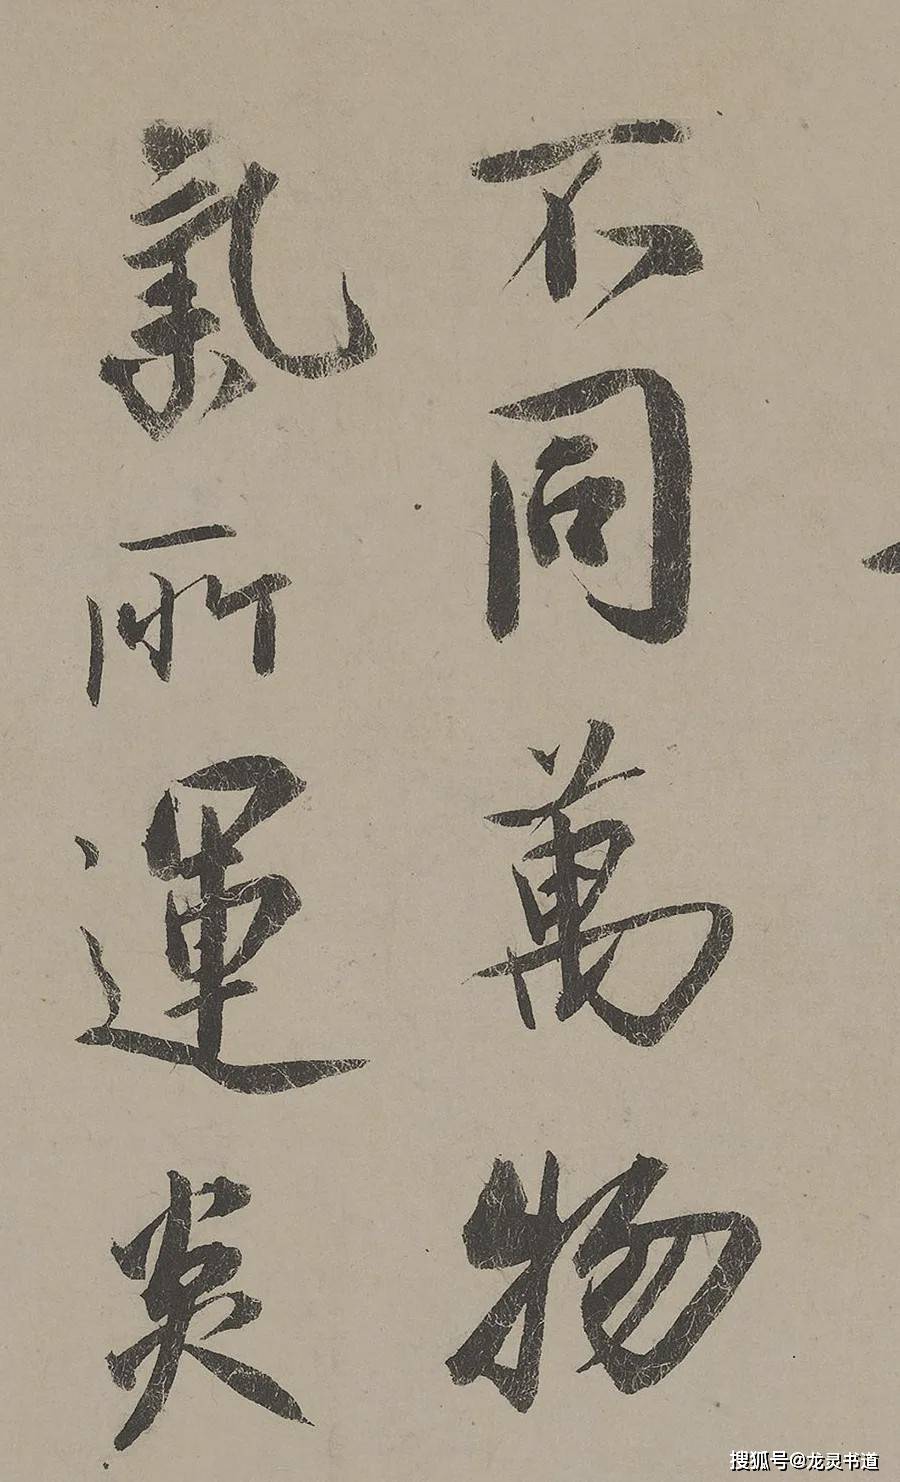 不同萬物
氣所運炎
搜狐号@龙灵书道